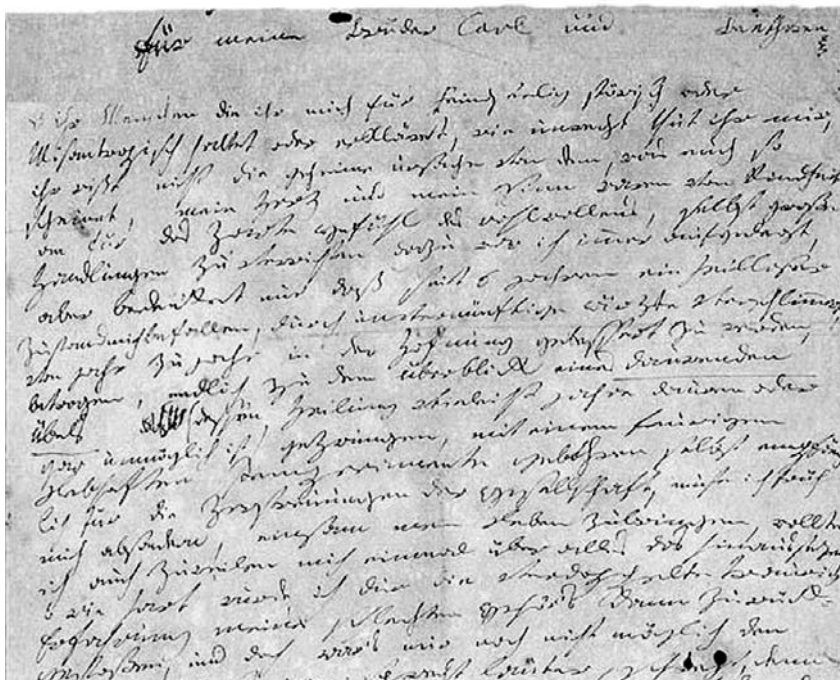 für meine Brüder Carl und Beethoven
o ihr Menschen die ihr mich für Feindseelig störisch oder
Misantropisch haltet oder erkläret, wie unrecht thut ihr mir,
ihr wißt nicht die geheime ursache von dem, was euch so
scheinet, mein Herz und mein Sinn waren von Kindheit
an für das Zarte Gefühl des wohlwollens, selbst große
Handlungen zu verrichten dazu war ich immer aufgelegt,
aber bedenket nur daß seit 6 jahren ein heilloser
Zustand mich befallen, durch unvernünftige ärzte verschlimmert,
von jahr zu jahr in der Hofnung gebessert zu werden,
betrogen, endlich zu dem überblick eines daurenden
Übels (dessen Heilung vieleicht jahre dauren oder
gar unmöglich ist) gezwungen, mit einem feurigen
Lebhaften Temperamente gebohren selbst empfäng
lich für die Zerstreuungen der Gesellschaft, muste ich früh
mich absondern, einsam mein Leben zubringen, wollte
ich auch zuweilen mich einmal über alles das hinaussezen,
o wie hart wurde ich dur die verdoppelte traurige
Erfahrung meines schlechten Gehör's dann zurück-
gestoßen, und doch war's mir noch nicht möglich den
sprecht lauter, schreyt, denn